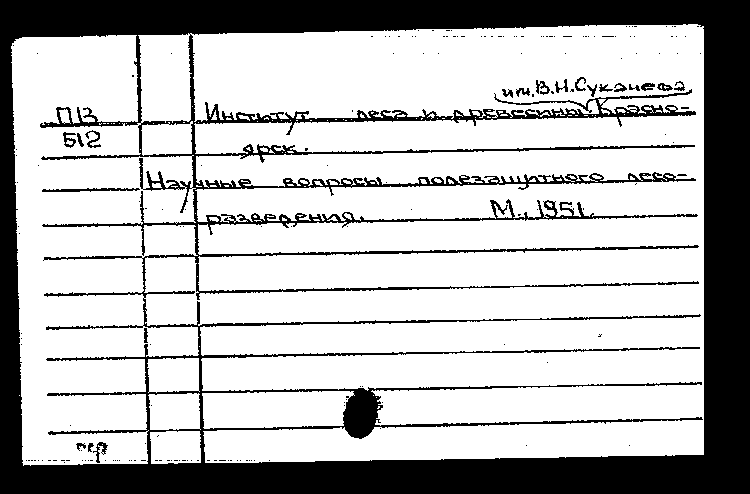 им. В.Н. Сукачева
ПВ Институт леса и древесины. Красно-
512
ярск.
Научные вопросы полезащитного лесо-
разведения. М., 1951.